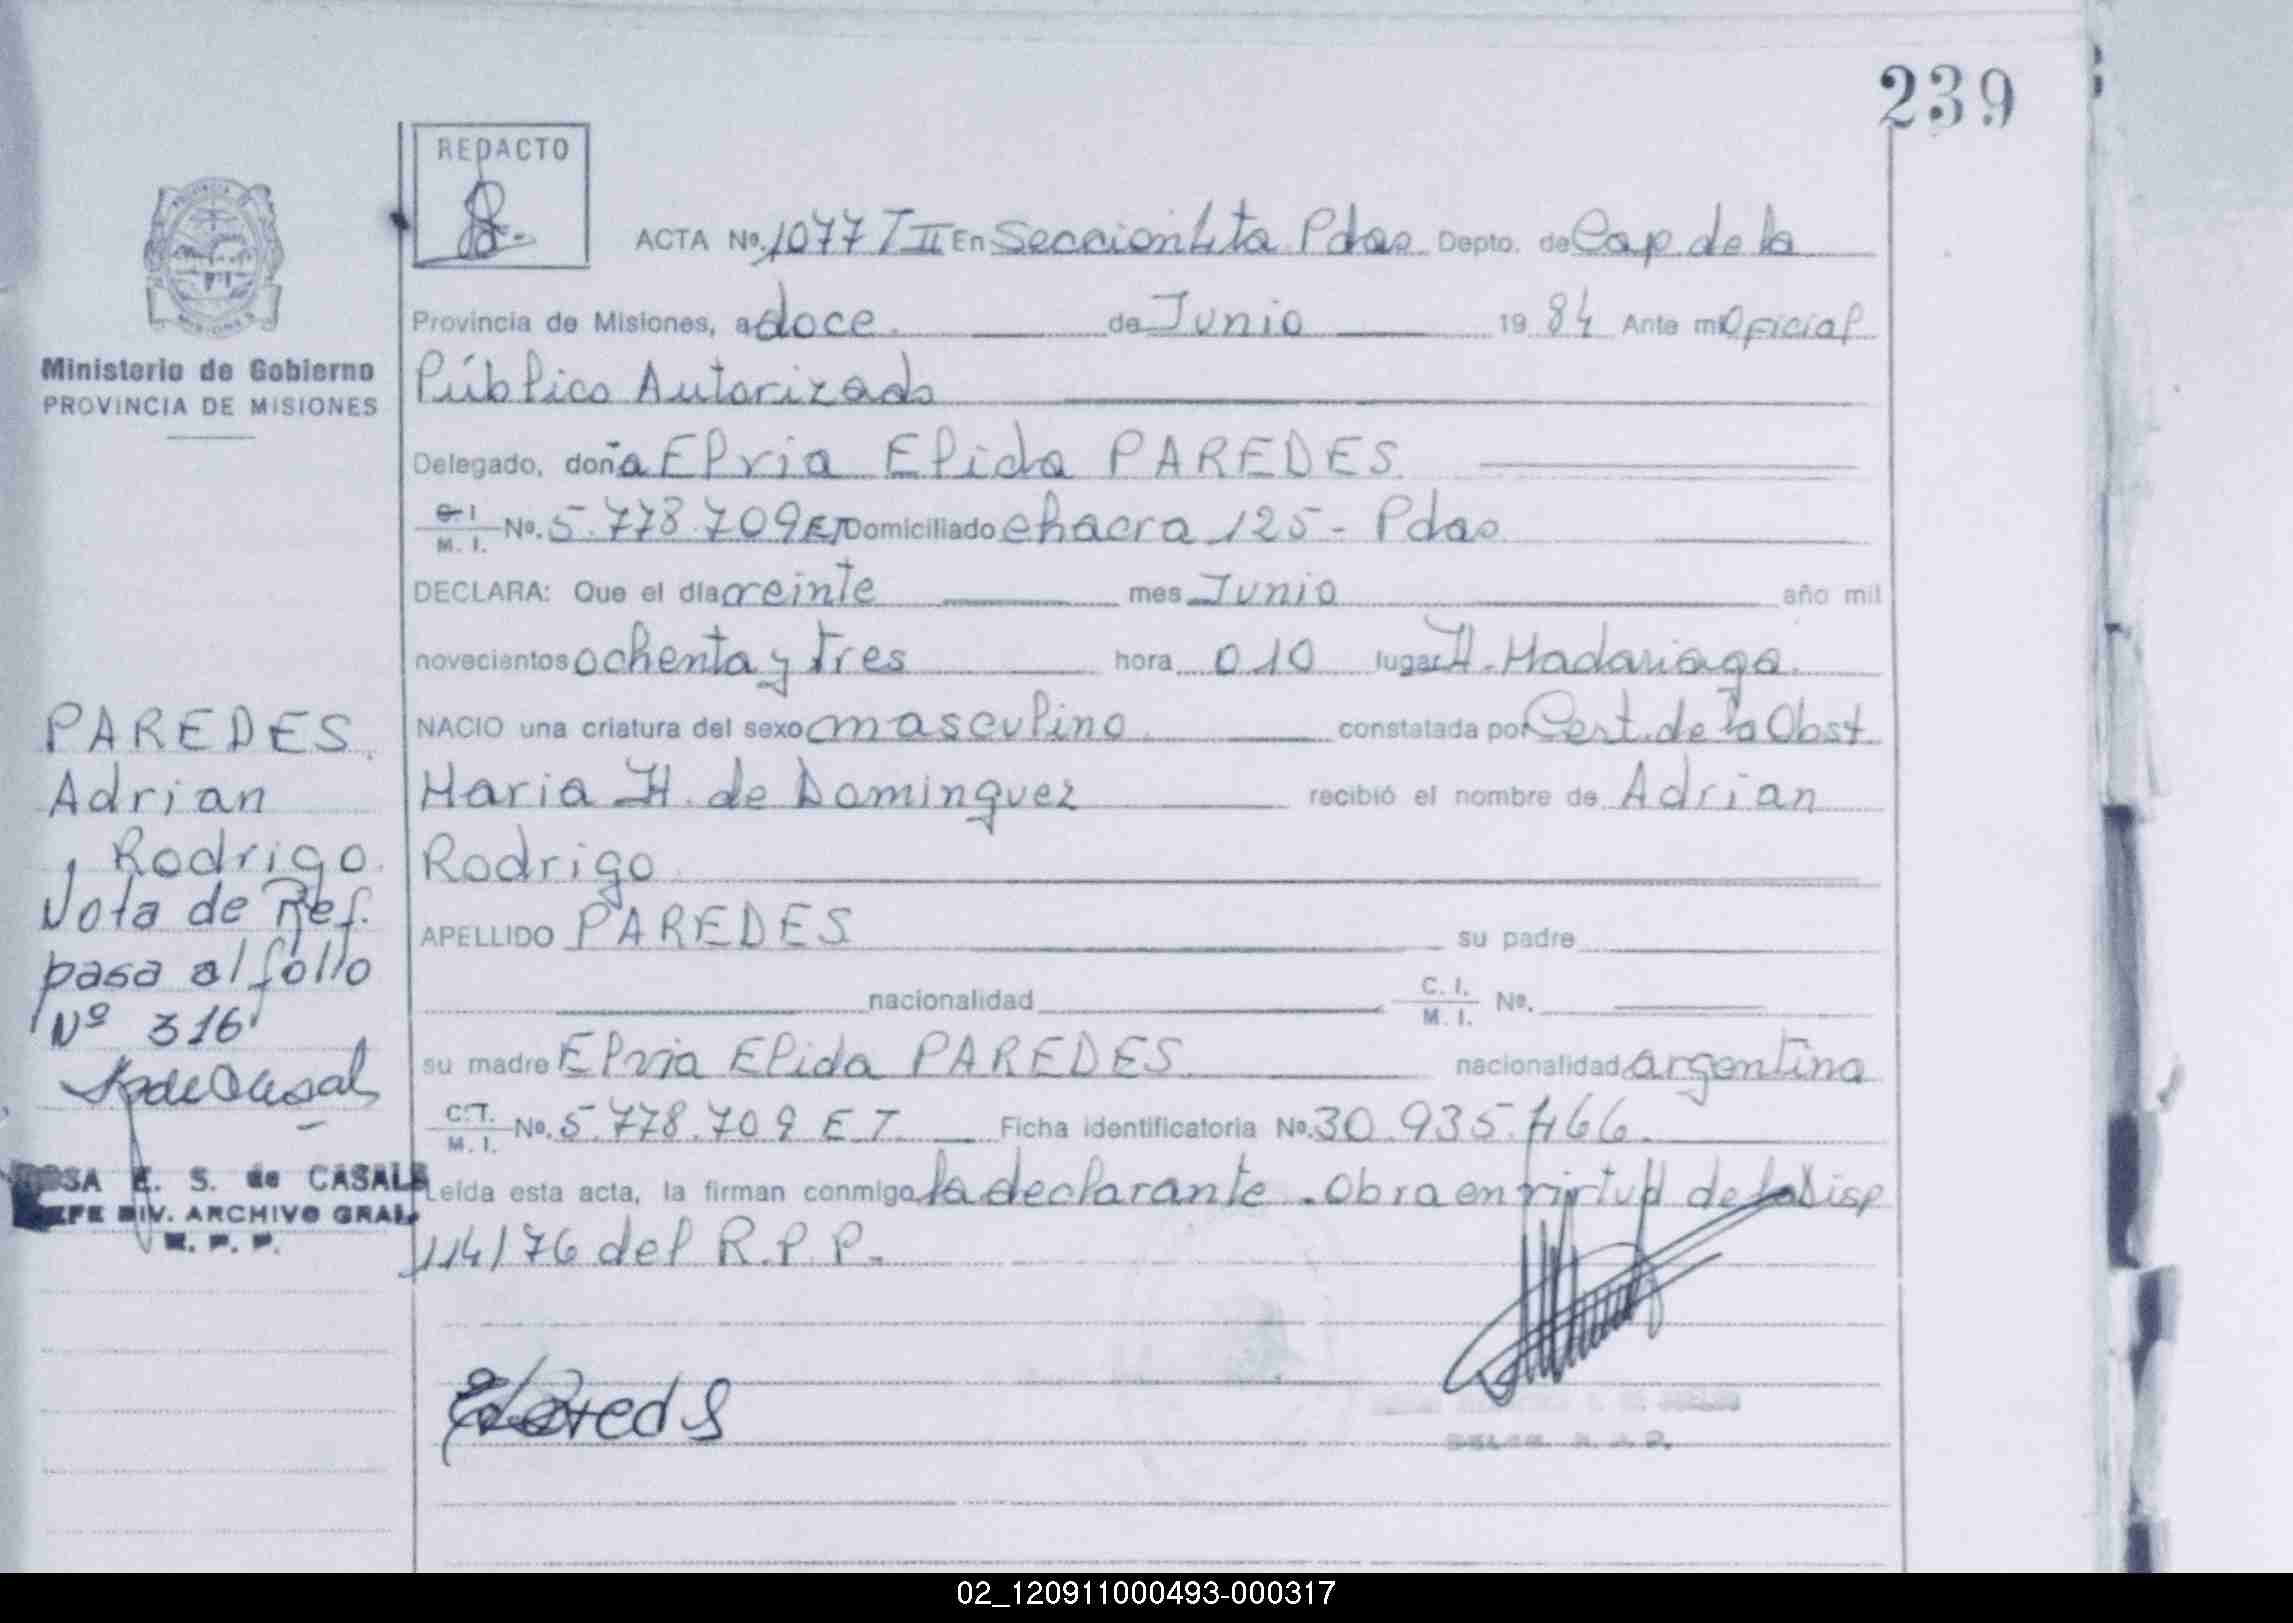 239
REDACTO
ACTA No. 1077 T II En Seccion 4ta Pdas Depto. de Cap. de la
Provincia de Misiones, a doce de Junio 19 84 Ante mi Oficial
Ministerio de Gobierno
PROVINCIA DE MISIONES
Público Autorizado
Delegado, doña Elvia Elida PAREDES
C.I. M.I. No. 5.778.709 ET Domiciliado chacra 125 - Pdas
DECLARA: Que el día veinte mes Junio año mil
novecientos ochenta y tres hora 010 lugar H. Madariaga.
NACIO una criatura del sexo masculino constatada por Cert. de la Obst
Maria H. de Dominguez recibió el nombre de Adrian
Rodrigo
APELLIDO PAREDES su padre
nacionalidad C.I. M.I. No.
su madre Elvia Elida PAREDES nacionalidad argentina
C.I. M.I. No. 5.778.709 E T Ficha identificatoria No. 30.935.466
Leída esta acta, la firman conmigo la declarante. Obra en virtud de la Disp
114/76 del R.P.P.
PAREDES
Adrian
Rodrigo
Nota de Ref.
pasa al folio
Nº 316
E. S. de CASALS
JEFE DIV. ARCHIVO GRAL.
R. P. P.
02_120911000493-000317